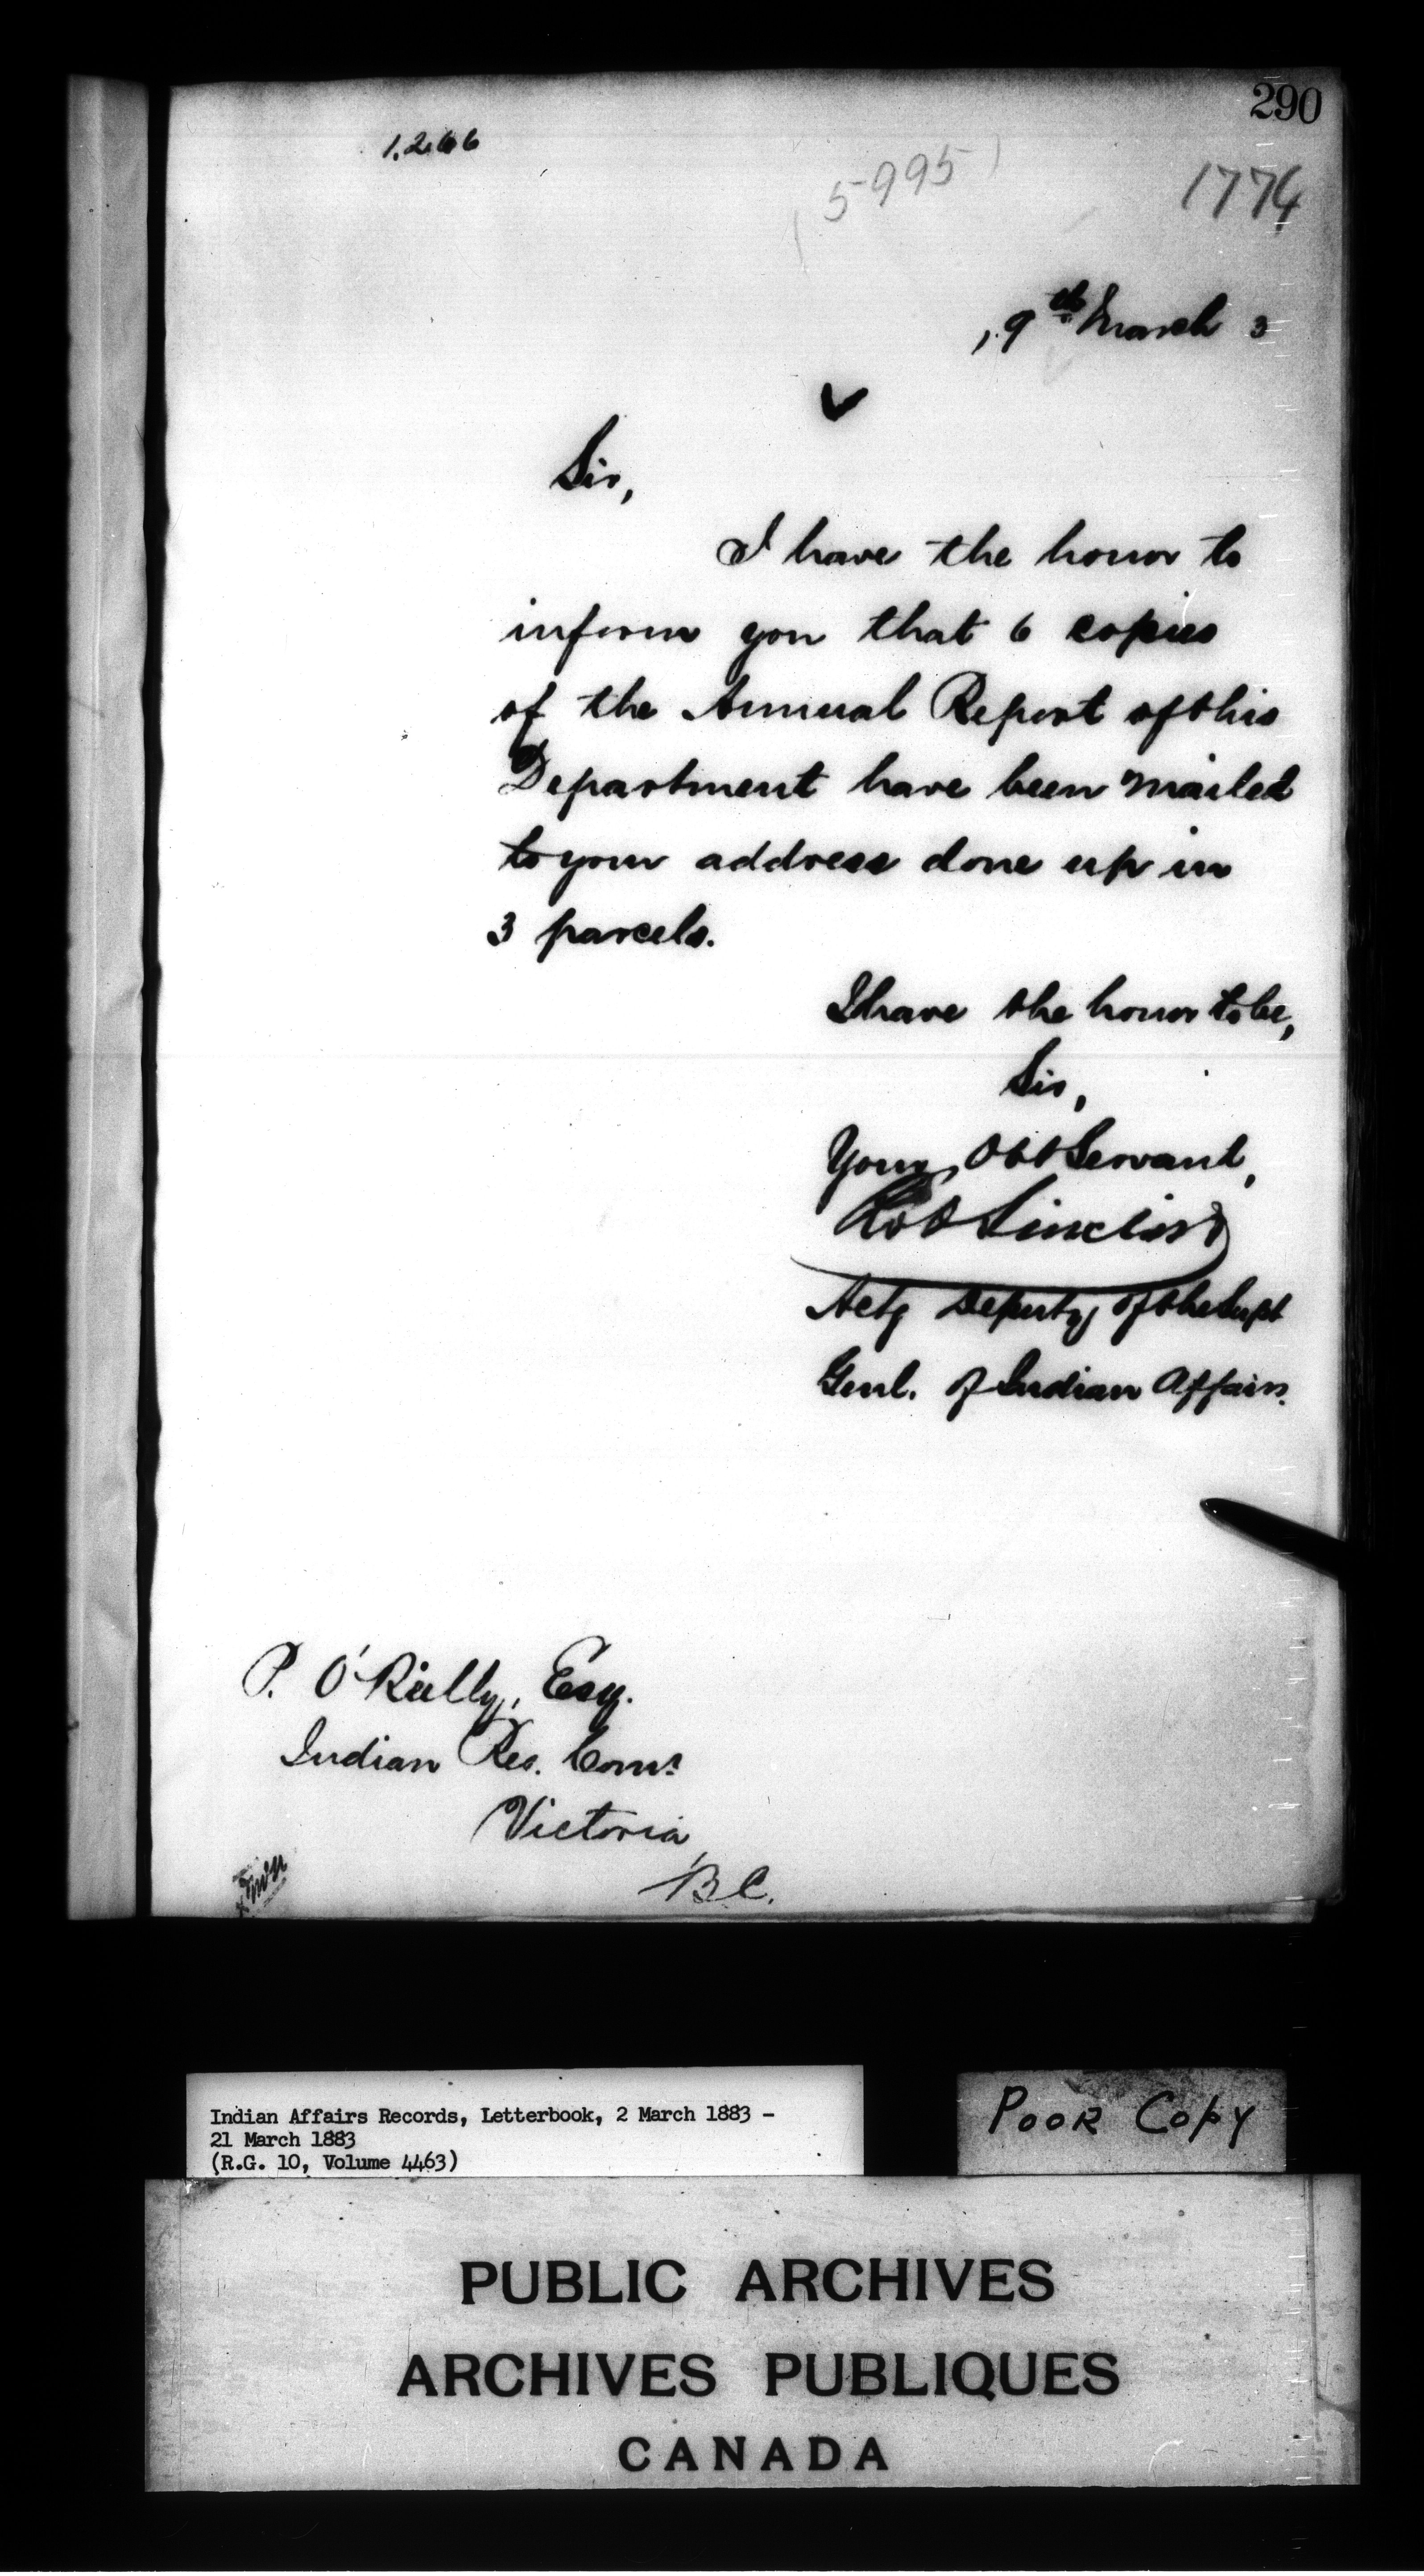 290
1,266
5995
1774
9th March 3
Sir,
I have the honor to
inform you that 6 copies
of the Annual Report of this
Department have been mailed
to your address done up in
3 parcels.
I have the honor to be,
Sir,
Your Obt Servant,
Rob Sinclair
Actg Deputy of the Supt
Genl. of Indian Affairs.
P. O'Rielly, Esq.
Indian Res. Comr
Victoria
B.C.
Indian Affairs Records, Letterbook, 2 March 1883 -
21 March 1883
(R.G. 10, Volume 4463)
POOR COPY
PUBLIC ARCHIVES
ARCHIVES PUBLIQUES
CANADA